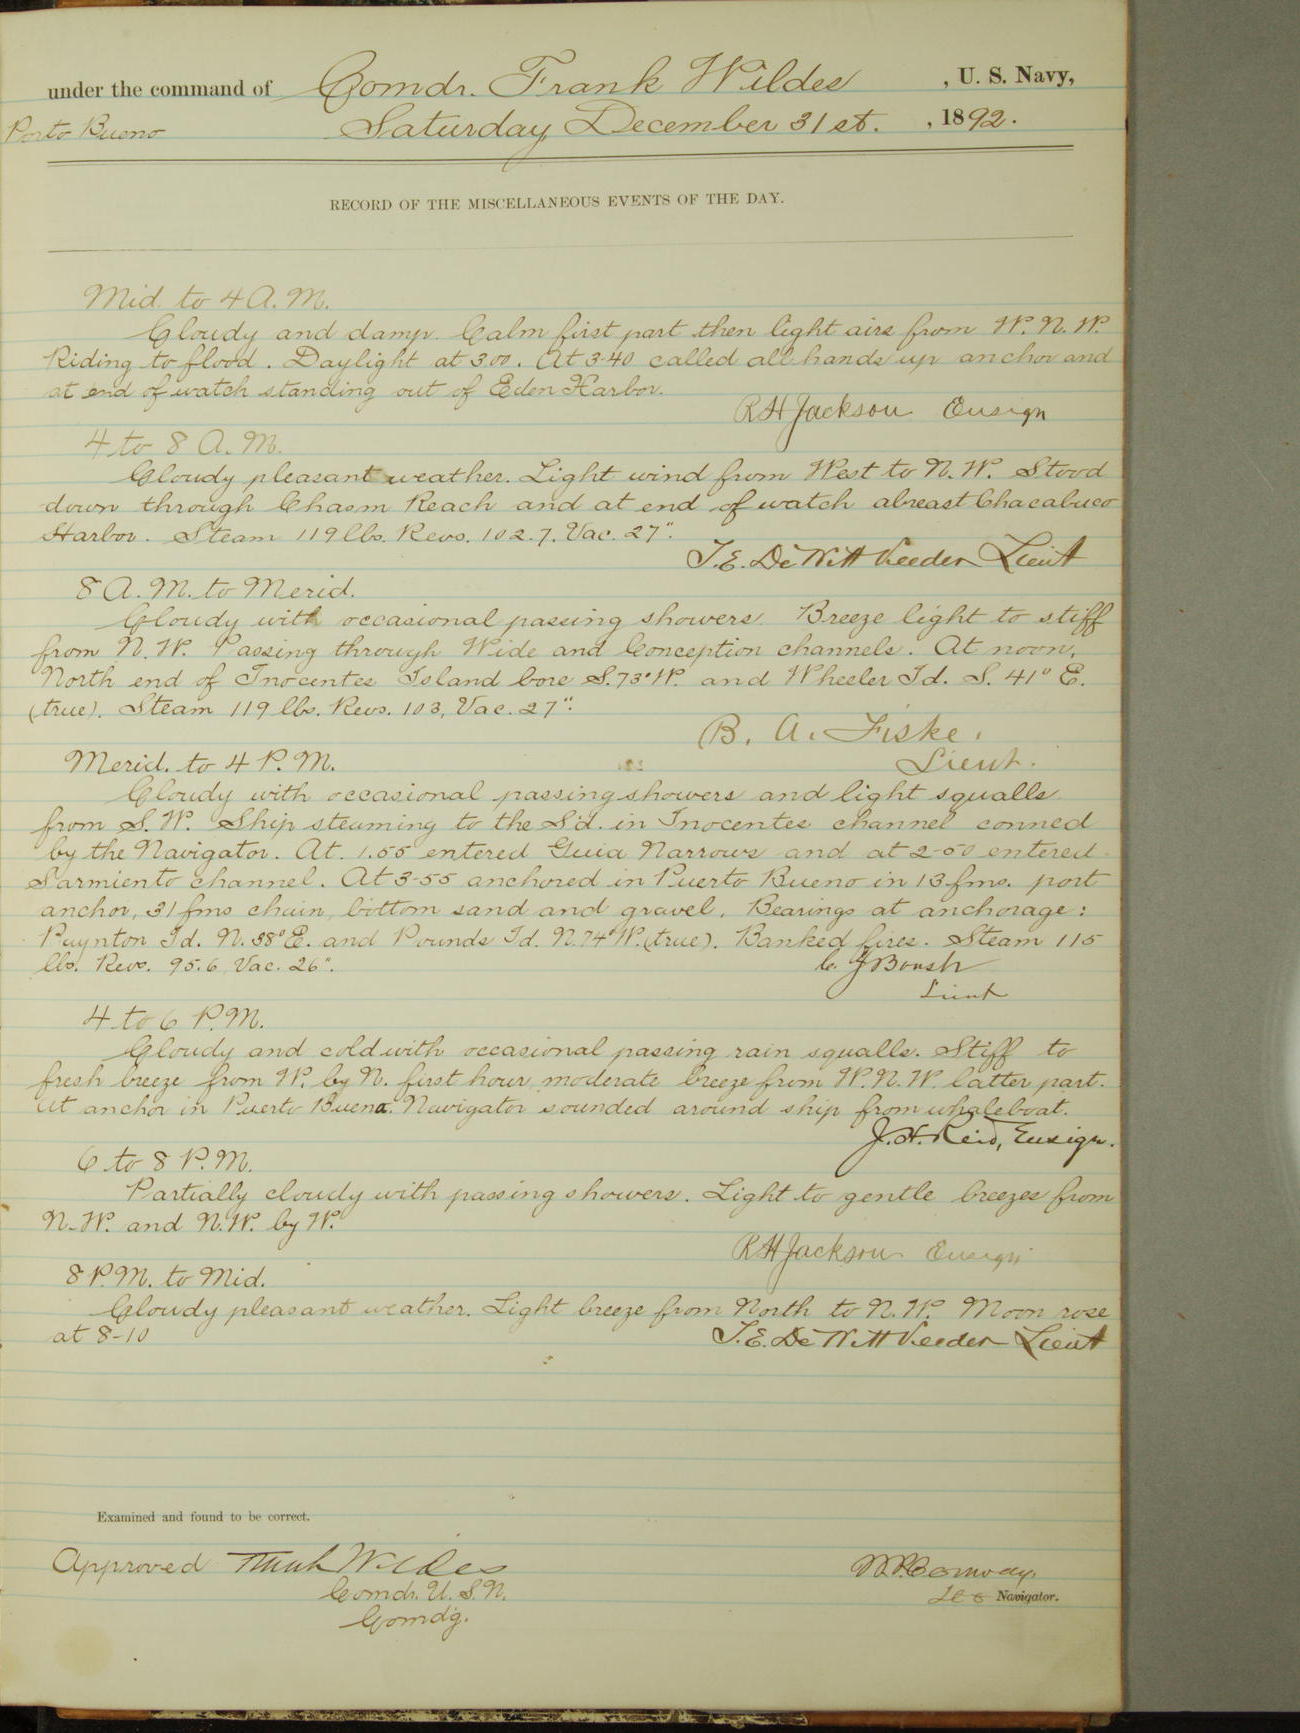 under the command of Comdr. Frank Wildes, U. S. Navy,
Porto Bueno Saturday, December 31st., 1892.
RECORD OF THE MISCELLANEOUS EVENTS OF THE DAY.
Mid to 4 A. M.
Cloudy and damp. Calm first part then light airs from W. N. W.
Riding to flood. Daylight at 3.00. At 3-40 called all hands up anchor and
at end of watch standing out of Eden Harbor.
R H Jackson Ensign
4 to 8 A. M.
Cloudy pleasant weather. Light wind from West to N. W. Stood
down through Chasm Reach and at end of watch abreast Chacabuco
Harbor. Steam 119 lbs. Revs. 102.7. Vac. 27".
T. E. DeWitt Veeder Lieut
8 A. M. to Merid.
Cloudy with occasional passing showers. Breeze light to stiff
from N. W. Passing through Wide and Conception channels. At noon,
North end of Inocentes Island bore S. 73° W. and Wheeler Id. S. 41° E.
(true). Steam 119 lbs. Revs. 103, Vac. 27".
B. A. Fiske.
Lieut.
Merid. to 4 P. M.
Cloudy with occasional passing showers and light squalls
from S. W. Ship steaming to the S'd. in Inocentes channel conned
by the Navigator. At 1.55 entered Guia Narrows and at 2-50 entered
Sarmiento channel. At 3-55 anchored in Puerto Bueno in 13 fms. port
anchor, 31 fms chain, bottom sand and gravel. Bearings at anchorage:
Paynton Id. N. 38° E. and Pounds Id. N. 74° W. (true). Banked fires. Steam 115
lbs. Revs. 95.6, Vac. 26".
C. J Boush
Lieut
4 to 6 P. M.
Cloudy and cold with occasional passing rain squalls. Stiff to
fresh breeze from W. by N. first hour, moderate breeze from W. N. W. latter part.
At anchor in Puerto Bueno. Navigator sounded around ship from whaleboat.
J. H. Reid, Ensign.
6 to 8 P. M.
Partially cloudy with passing showers. Light to gentle breezes from
N. W. and N. W. by W.
R H Jackson Ensign
8 P. M. to Mid.
Cloudy pleasant weather. Light breeze from North to N. W. Moon rose
at 8-10
T. E. DeWitt Veeder Lieut
Examined and found to be correct.
Approved Frank Wildes
Comdr. U. S. N.
Comdg.
W. P. Conway
Navigator.